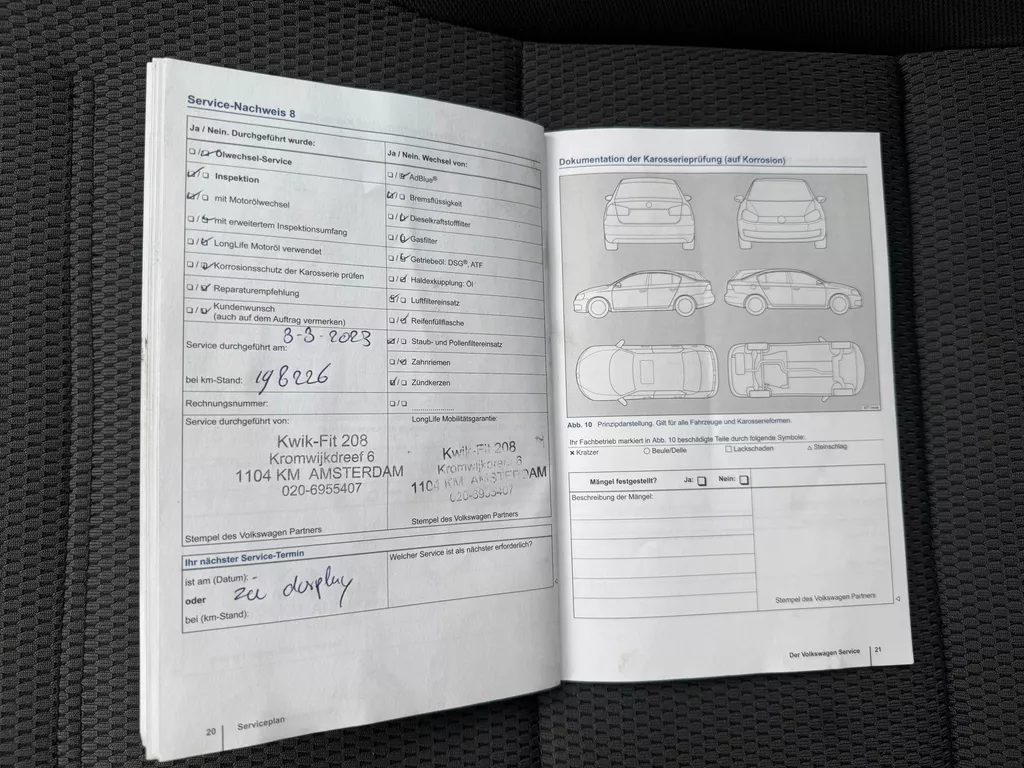 Service-Nachweis 8
Ja / Nein. Durchgeführt wurde:
Ölwechsel-Service
Inspektion
mit Motorölwechsel
mit erweitertem Inspektionsumfang
LongLife Motoröl verwendet
Korrosionsschutz der Karosserie prüfen
Reparaturempfehlung
Kundenwunsch
(auch auf dem Auftrag vermerken)
Ja / Nein. Wechsel von:
AdBlue®
Bremsflüssigkeit
Dieselkraftstofffilter
Gasfilter
Getriebeöl: DSG®, ATF
Haldexkupplung: Öl
Luftfiltereinsatz
Reifenfüllflasche
Staub- und Pollenfiltereinsatz
Zahnriemen
Zündkerzen
Service durchgeführt am: 3-3-2023
bei km-Stand: 198226
Rechnungsnummer:
Service durchgeführt von:
Kwik-Fit 208
Kromwijkdreef 6
1104 KM AMSTERDAM
020-6955407
Stempel des Volkswagen Partners
LongLife Mobilitätsgarantie:
Kwik-Fit 208
Kromwijkdreef 6
1104 KM AMSTERDAM
020-6955407
Stempel des Volkswagen Partners
Ihr nächster Service-Termin
ist am (Datum): -
oder zie display
bei (km-Stand):
Welcher Service ist als nächster erforderlich?
20 Serviceplan
Dokumentation der Karosserieprüfung (auf Korrosion)
Abb. 10 Prinzipdarstellung. Gilt für alle Fahrzeuge und Karosserieformen.
Ihr Fachbetrieb markiert in Abb. 10 beschädigte Teile durch folgende Symbole:
× Kratzer ○ Beule/Delle □ Lackschaden △ Steinschlag
Mängel festgestellt? Ja: Nein:
Beschreibung der Mängel:
Stempel des Volkswagen Partners
Der Volkswagen Service 21